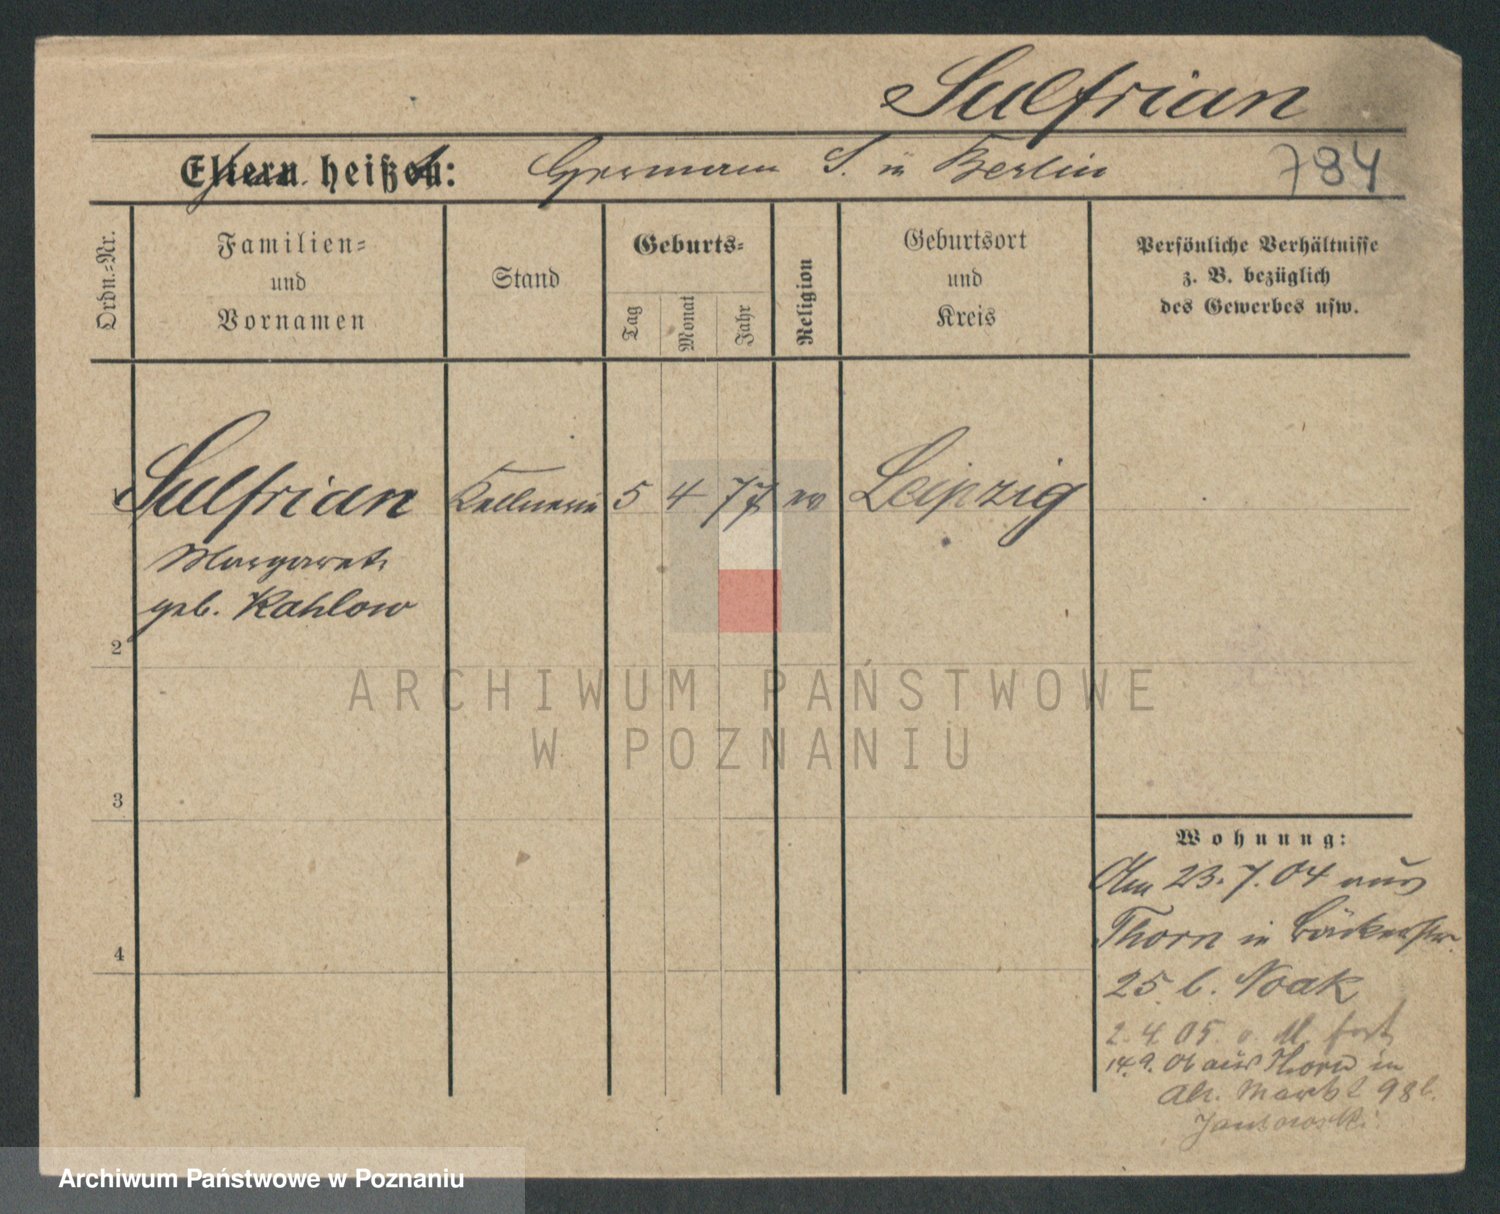 Sulfrian
Eltern heißen:
Hermann S. in Berlin
784
Ordn.-Nr.
Familien-
und
Vornamen
Stand
Geburts-
Tag
Monat
Jahr
Religion
Geburtsort
und
Kreis
Persönliche Verhältnisse
z. B. bezüglich
des Gewerbes usw.
Sulfrian
Kellnerin
5
4
77
ev
Leipzig
Margarete
geb. Kahlow
2
3
4
Wohnung:
Am 23.7.04 aus
Thorn in Bäckerstr.
25 b. Noak
2.4.05 o. M. fort
14.9.06 aus Thorn in
Alt. Markt 98 b.
ARCHIWUM PAŃSTWOWE
W POZNANIU
Archiwum Państwowe w Poznaniu